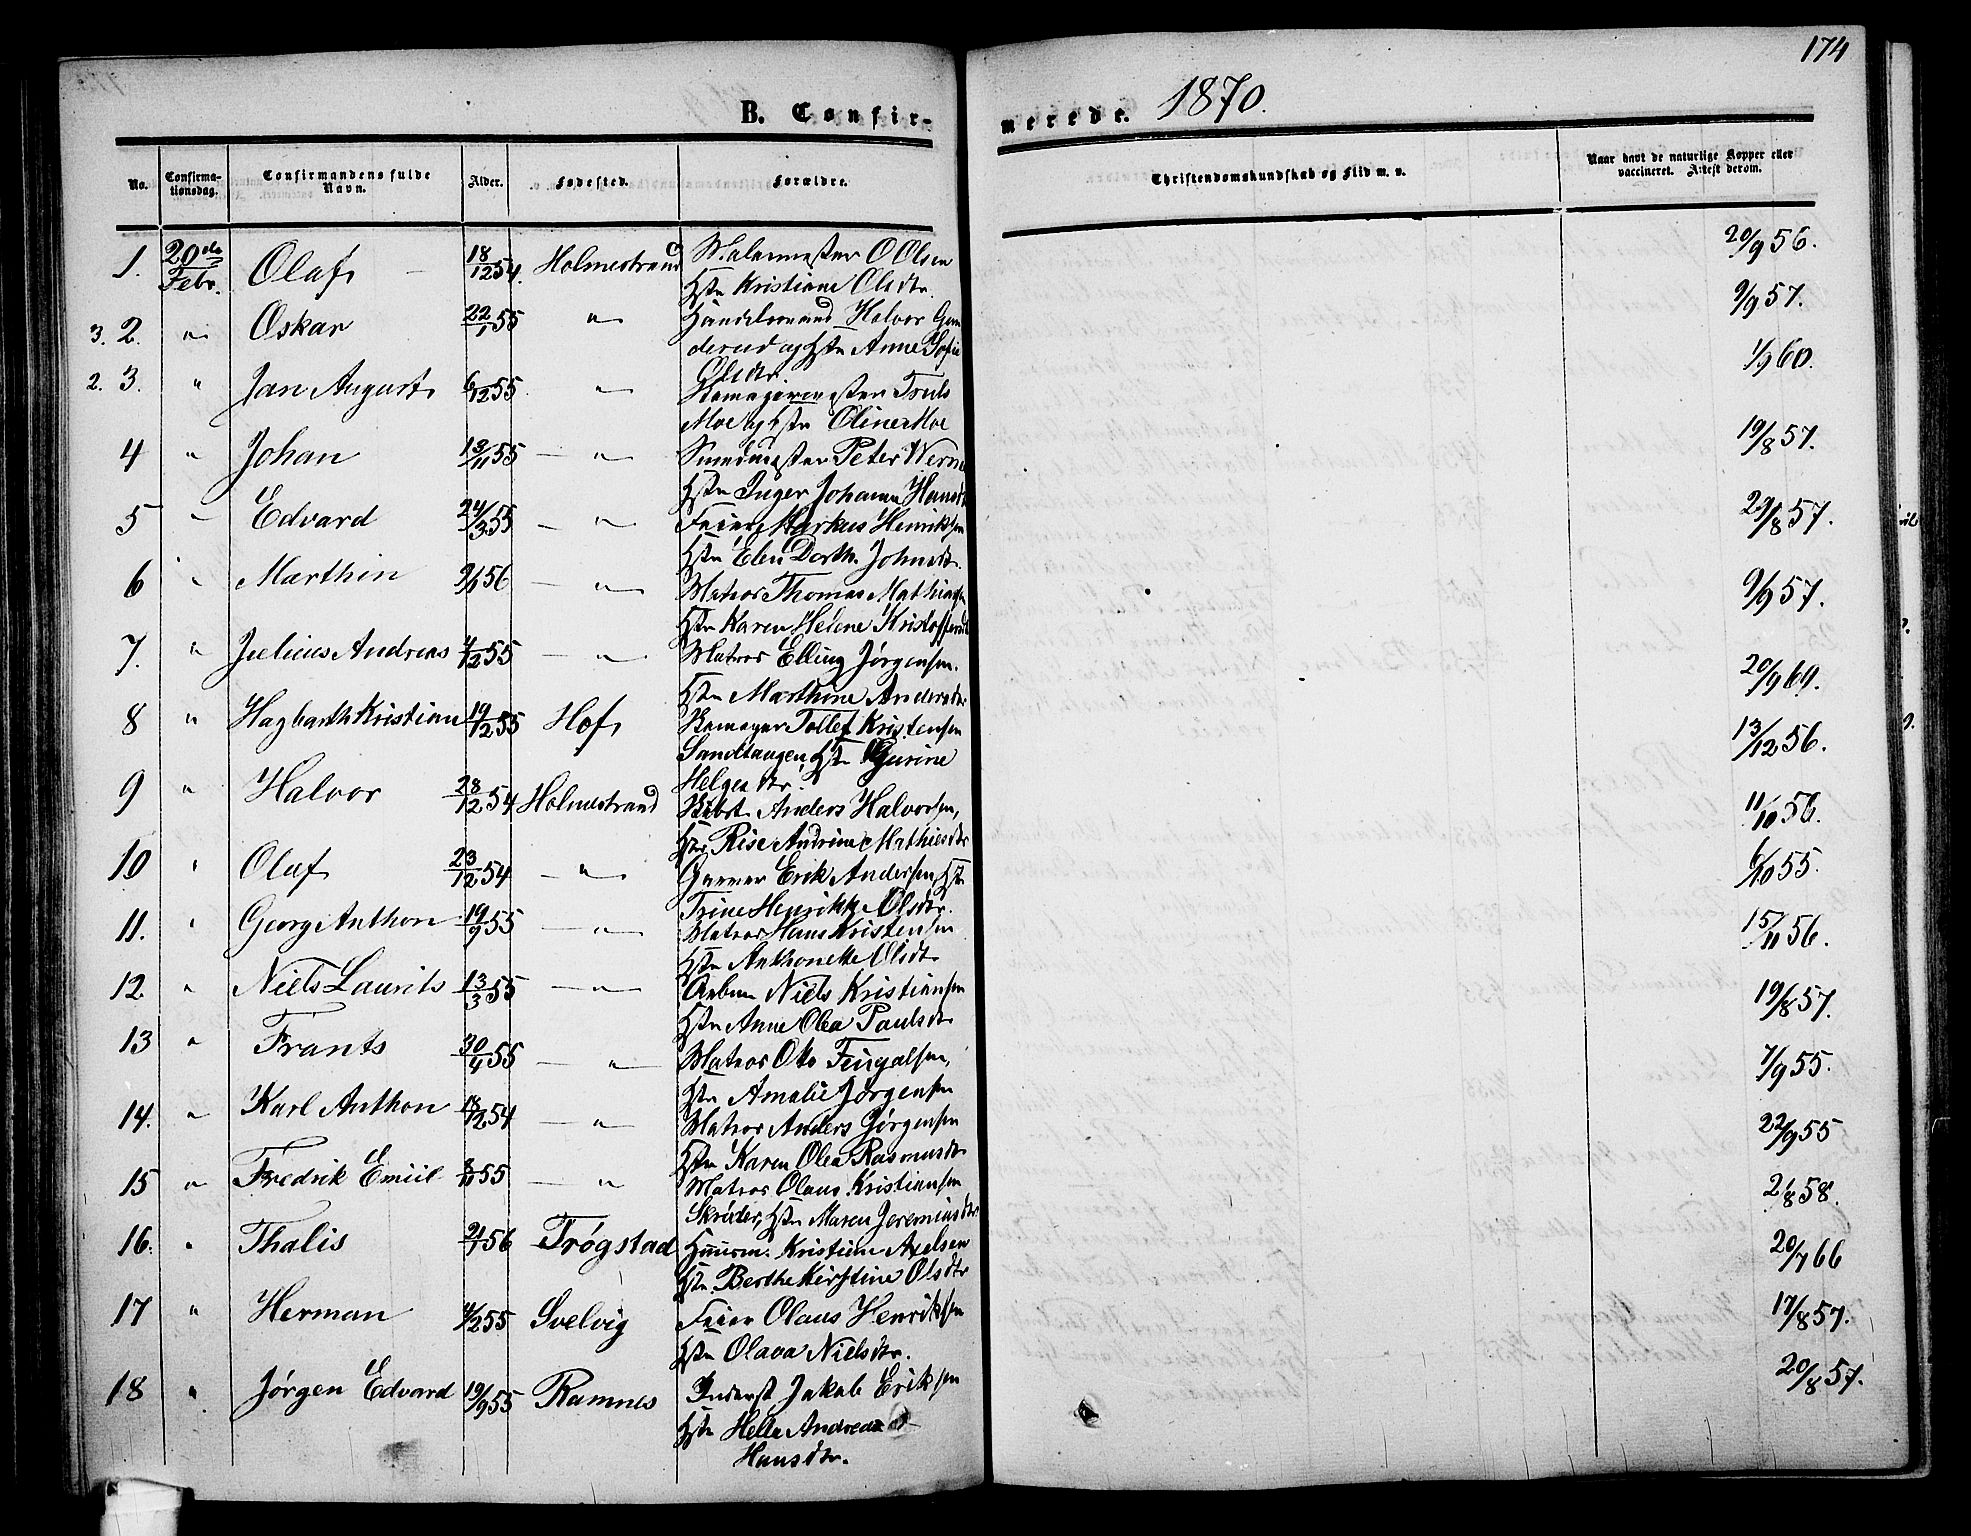 174
B. Confir-
merede. 1870.
No.
Confirma-
tionsdag.
Confirmandens fulde
Navn.
Alder.
Fødested.
Forældre.
Christendomskundskab og Flid m. v.
Naar havt de naturlige Kopper eller
vaccineret. Attest derom.
1. 20de Febr. Olaf 18/12 54. Holmestrand Malermester O Olsen 20/9 56.
Hstr Kristiane Olsdtr.
3. 2. " Oskar 22/1 55 " Handelsmand Halvor Gun 9/9 57.
derud og Hstr Anne Sofie
Olsdtr.
2. 3. " Jan August 6/12 55 " Truls 1/9 60.
Moe og Hstr Oline Moe
4 " Johan 13/11 55 " Smedmester Peter Werne 19/8 57.
Hstr Inger Johanne Hansdt
5 " Edvard 24/3 55 " Feier Markus Henriksen 29/8 57.
Hstr Elen Dorth. Johnsdtr.
6 " Marthin 9/1 56 " Matros Thomas Mathiasen 9/9 57.
Hstr Karen Helene Kristoffersdt
7. " Julius Andreas 4/12 55 " Matros Elling Jørgensen. 20/9 69.
Hstr Marthine Andersdtr
8 " Hagbarth Kristian 19/12 55 Hof Tollef Kristensen 13/12 56.
Sandtangen, Hstr Gurine
Helgesdtr.
9 " Halvor 28/12 54 Holmestrand Anders Halvorsen, 11/10 56.
Hstr Rise Andrine Mathiesdtr
10 " Olaf 23/12 54 " Garver Erik Andersen, Hstr 6/10 55.
Trine Henrikke Olsdtr.
11. " Georg Anthon 19/9 55 " Matros Hans Kristensen 15/11 56.
Hstr Anthonette Olsdt
12. " Niels Laurits 13/3 55 " Arbm Niels Kristiansen 19/8 57.
Hstr Anne Olea Paulsdtr
13 " Frants 30/4 55 " Matros Otto Fingalsen, 7/9 55.
Hstr Amalie Jørgensen
14. " Karl Anthon 18/12 54 " Matros Anders Jørgensen 22/9 55
Hstr Karen Olea Rasmusdtr
15 " Fredrik Emiil 8/11 55 " Matros Olaus Kristiansen 2/8 58.
Skrøder, Hstr Maren Jeremiasdtr
16. " Thalis 21/1 56 Trøgstad Huusm. Kristian Axelsen 20/7 66
Hstr. Berthe Kirstine Olsdtr
17 " Herman 4/2 55 Svelvig Feier Olaus Henriksen 17/8 57.
Hstr Olava Nielsdtr.
18 " Jørgen Edvard 19/9 55 Ramnes Inderst Jakob Eriksen 20/8 57.
Hstr Helle Andrea
Hansdtr.